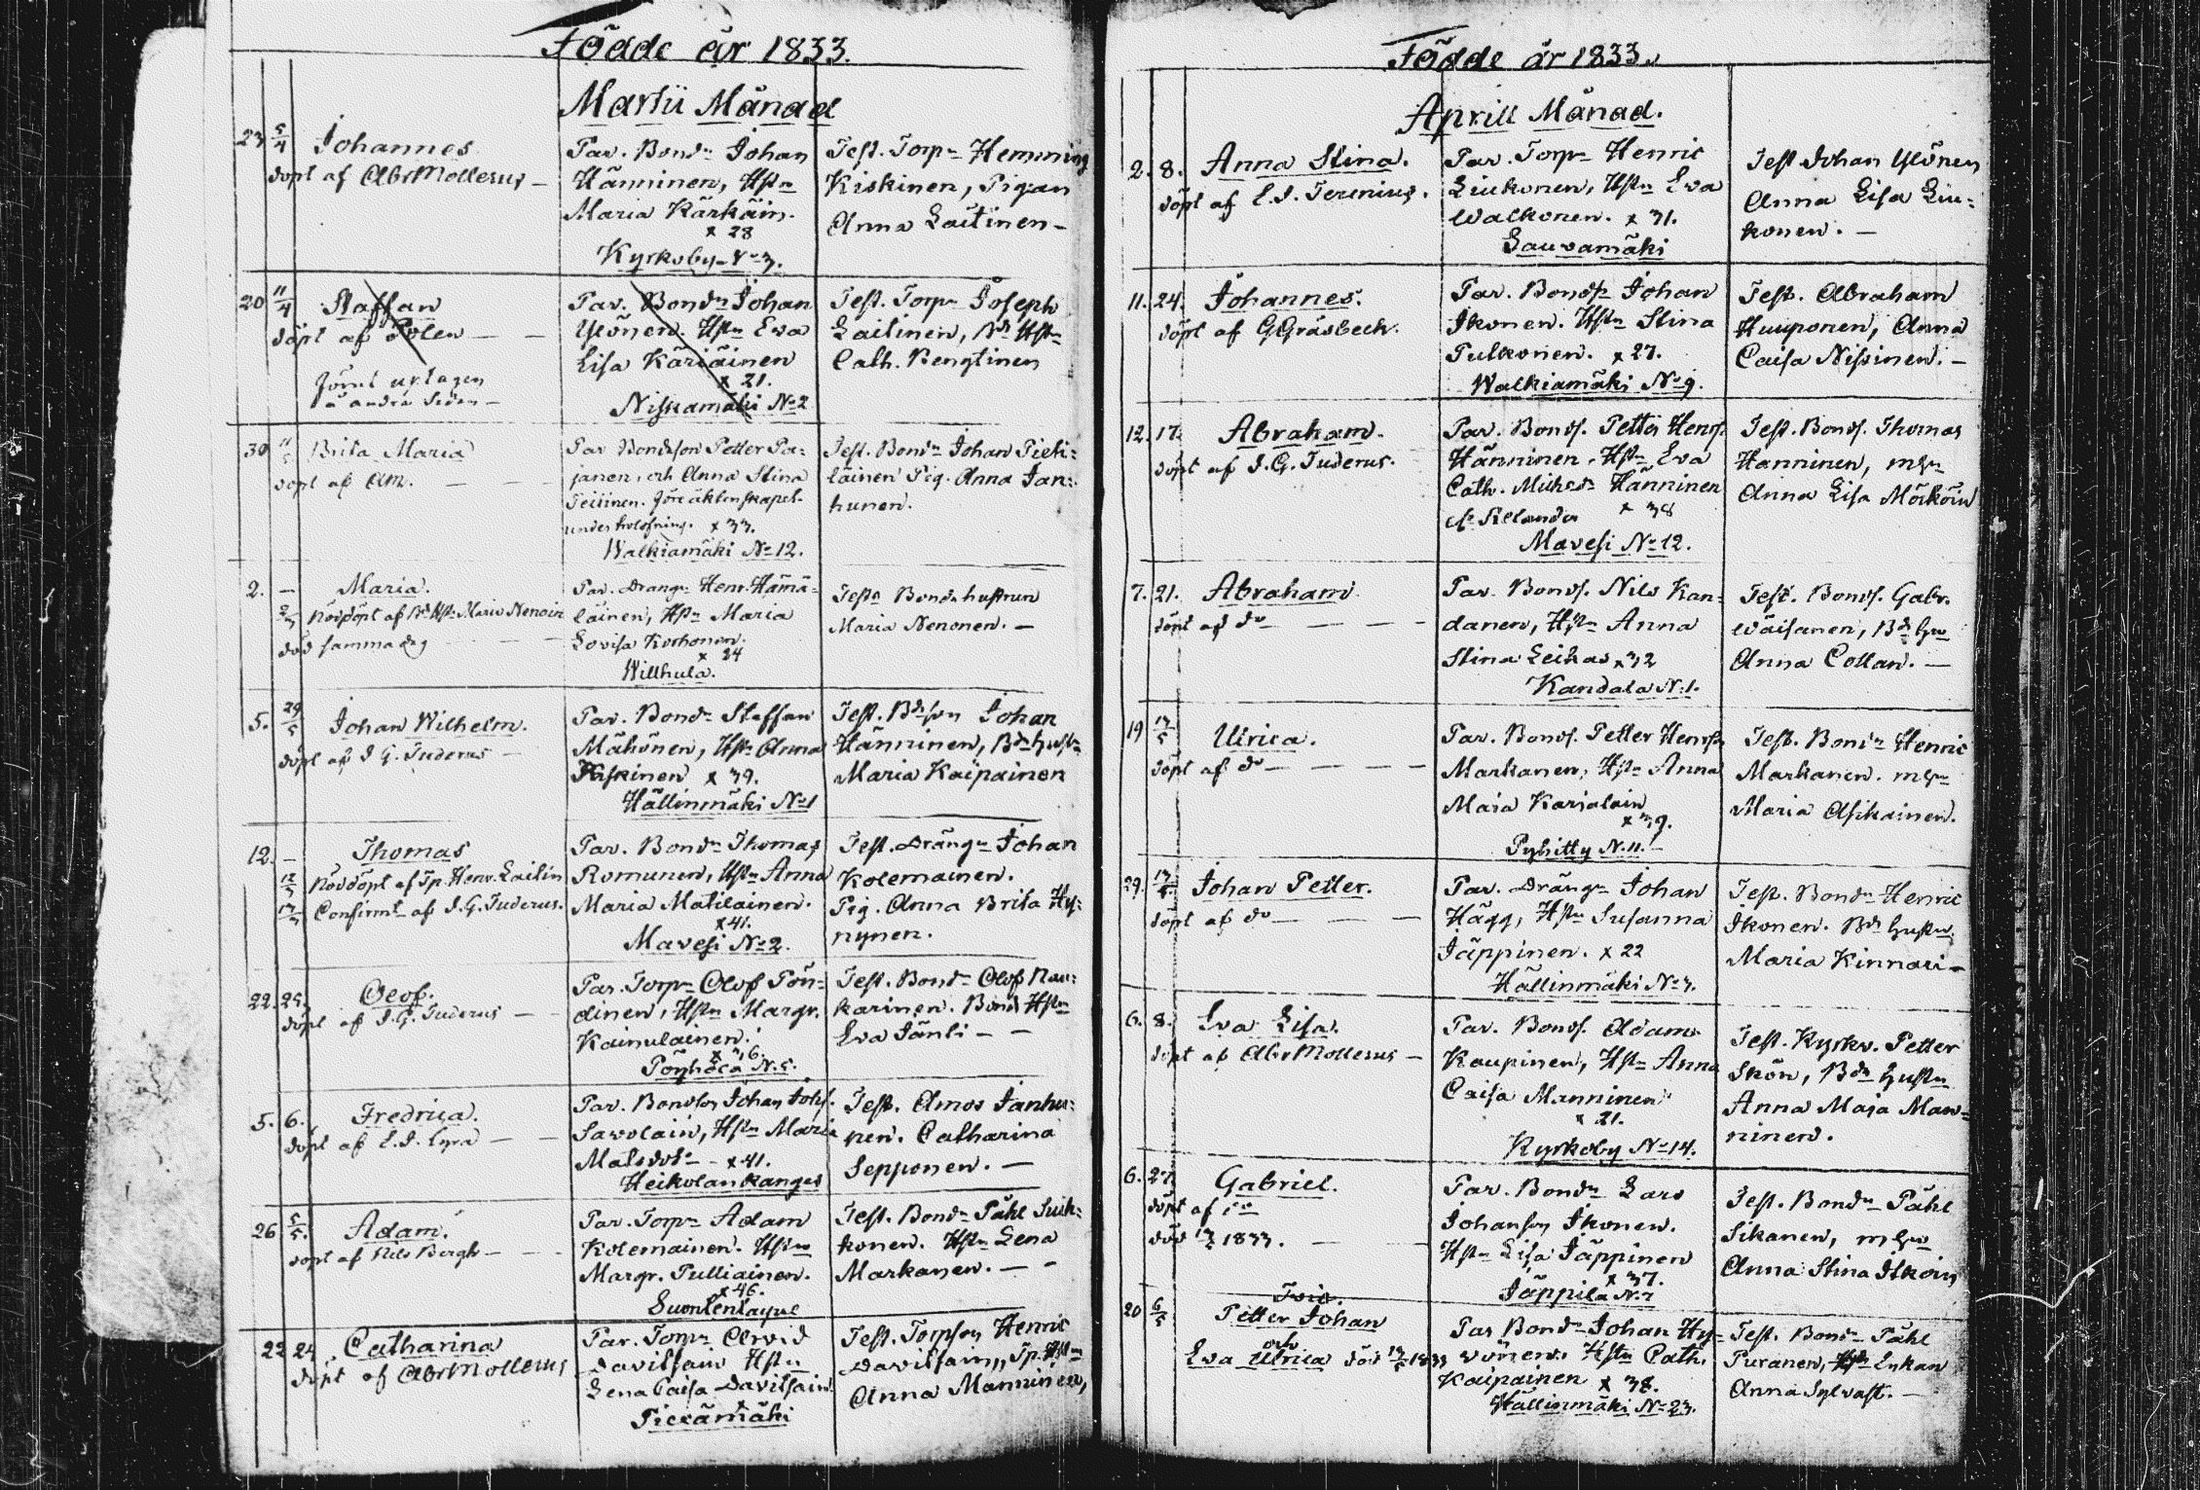 Födde år 1833.
Martii Månad
23 5/4 Johannes
döpt af AbrMollerus –
Par. Bond:n Johan
Hänninen, Hst:n
Maria Kärkäin.
x 28
Kyrkoby N:o 3.
Test. Torp:n Hemming
Kiskinen, Pigan
Anna Laitinen –
20 11/4 Staffan
döpt af Polen – –
förut uptagen
å andra sidan –
Par. Bond:n Johan
Ylönen. Hst:n Eva
Lisa Käriäinen
x 21.
Niskamäki N:o 2
Test. Torp:n Joseph
Laitinen, Bd: Hst:n
Cath. Rengtinen
30 11/5 Brita Maria
döpt af AM. – – –
Par Bondeson Petter Pa-
janen, och Anna Stina
Teitinen. före äktenskapet
under trolofning. x 33.
Walkiamäki N:o 12.
Test. Bond:n Johan Pieti-
läinen Pig. Anna Jan-
hunen.
2. – Maria.
Nöddöpt af Bd: Hst: Maria Nenoin
död samma dag – –
Par. Dräng:n Henr. Hämä-
läinen, Hst:n Maria
Lovisa Korhonen.
x 24
Willhula.
Test:n Bondehustrun
Maria Nenonen. –
5. 29/5 Johan Wilhelm.
döpt af J G. Tuderus –
Par. Bond:n Staffan
Mähönen, Hst:n Anna
Kiskinen x 39.
Hällinmäki N:o 1
Test. Bdson Johan
Hänninen, Bd: hust:n
Maria Kaipainen
12. – Thomas
Nöddöpt af Tp. Henr. Laitin
Confirmt af J.G. Tuderus.
Par. Bond:n Thomas
Romunen, Hst:n Anna
Maria Matilainen.
x 41.
Mavesi N:o 2.
Test. Dräng:n Johan
Kolemainen.
Pig. Anna Brita Hy-
nynen.
22. 24. Olof.
döpt af J.G. Tuderus – –
Par. Torp:n Olof Pön-
dinen, Hst:n Margr.
Kainulainen.
x 36.
Pöyhölä N. 5.
Test. Bond:n Olof Nau-
karinen. Bond Hst:n
Eva Jänti – –
5. 6. Fredrica.
döpt af E.J. Cyra – –
Par. Bondson Johan Johs.
Savolain, Hst:n Maria
Matsdotr – x 41.
Heikolankangas
Test. Amos Janhu-
nen. Catharina
Sepponen. –
26 5/5. Adam.
döpt af Nils Bergh – –
Par. Torp:n Adam
Kolemainen. Hst:n
Margr. Pulliainen.
x 46.
Suontentaque
Test. Bond:n Påhl Suik-
konen. Hst:n Lena
Markanen. – –
22 24 Catharina
döpt af AbrMollerus
Par. Torp:n Arvid
Davitsain Hst:n
Lena Caisa Davitsain
Piexämäki
Test. Torpson Henric
Davitsain, Tp. Hst:n
Anna Manninen,
Födde år 1833.
Aprill Månad.
2. 8. Anna Stina.
döpt af E.J. Terenius.
Par. Torp:n Henric
Liukonen, Hst:n Eva
Walkonen. x 31.
Lauvamäki
Test Johan Ylönen
Anna Lisa Liu-
konen. –
11. 24. Johannes.
döpt af GGråsbeck.
Par. Bonds:n Johan
Ikonen. Hst:n Stina
Pulkonen. x 27.
Walkiamäki N:o 9.
Test. Abraham
Huuponen, Anna
Caisa Nissinen. –
12. 17. Abraham.
döpt af J.G. Tuderus.
Par. Bonds. Petter Henrs.
Hänninen. Hst:n Eva
Cath. Michsd:r Hänninen
x 38
Mavesi N:o 12.
Test. Bonds. Thomas
Hänninen, m hu
Anna Lisa Mörköin
7. 21. Abraham
döpt af d:o – – – –
Par. Bonds. Nils Kan-
danen, Hst:n Anna
Stina Leikas x 32
Kandala N. 1.
Test. Bonds. Gabr.
Wäisänen, Bd: hu
Anna Collan. –
19 13/5 Ulrica.
döpt af d:o – – – –
Par. Bonds. Petter Henrss
Markanen, Hst:n Anna
Maia Karialain
x 39.
Pyhitty N. 11.
Test. Bond:n Henric
Markanen. m hu
Maria Asikainen.
29. 13/5 Johan Petter.
döpt af d:o – – – –
Par. Dräng:n Johan
Hägg, Hst:n Susanna
Jäppinen. x 22
Hällinmäki N:o 3.
Test. Bond:n Henric
Ikonen. Bd: hustru
Maria Kinnari –
6. 8. Eva Lisa.
döpt af AbrMollerus –
Par. Bonds. Adam
Kaupinen, Hst:n Anna
Caisa Manninen
x 21.
Kyrkoby N:o 14.
Test. Kyrkv. Petter
Skön, Bd: hustru
Anna Maja Man-
ninen.
6. 27. Gabriel.
döpt af d:o
död 1833. – – –
Par. Bond:n Lars
Johanson Ikonen.
Hst:n Lisa Jäppinen
x 37.
Jäppilä N. 7
Test. Bond:n Påhl
Sikanen, m hu
Anna Stina Itkoin
20 6/5 Petter Johan
och
Eva Ulrica död 1833
Par Bond:n Johan Hy-
vönen. Hst:n Cath.
Kaipainen x 38.
Hällinmäki N:o 23.
Test. Bond:n Påhl
Puranen, Enkan
Anna Sylvast. –